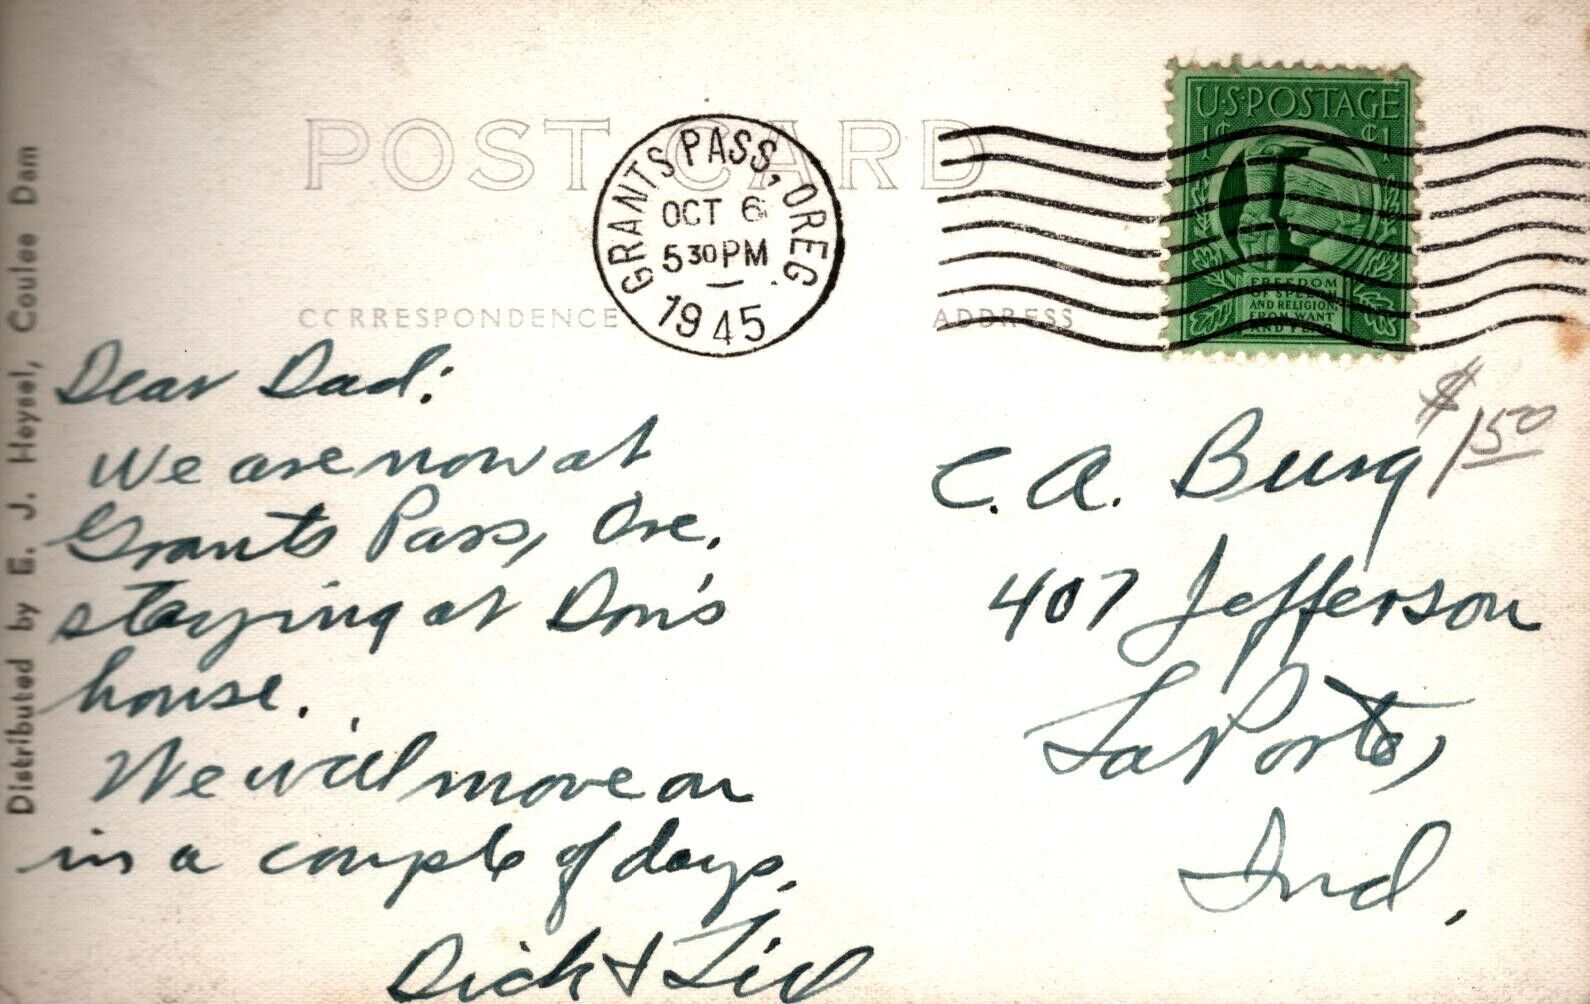 POST CARD
GRANTS PASS, OREG.
OCT 6
5 30 PM
1945
U.S. POSTAGE
1¢ ¢1
FREEDOM
OF SPEECH
AND RELIGION,
FROM WANT
AND FEAR
CORRESPONDENCE
ADDRESS
Distributed by E. J. Heysel, Coulee Dam
Dear Dad:
We are now at
Grants Pass, Ore.
staying at Don's
house.
We will move on
in a couple of days.
Dick &
$1 50
C. A. Burg
407 Jefferson
LaPorte,
Ind.